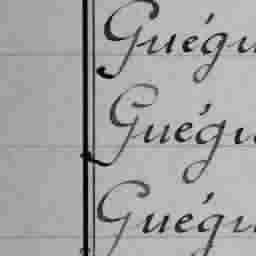 Guégu
Guégu
Guégu